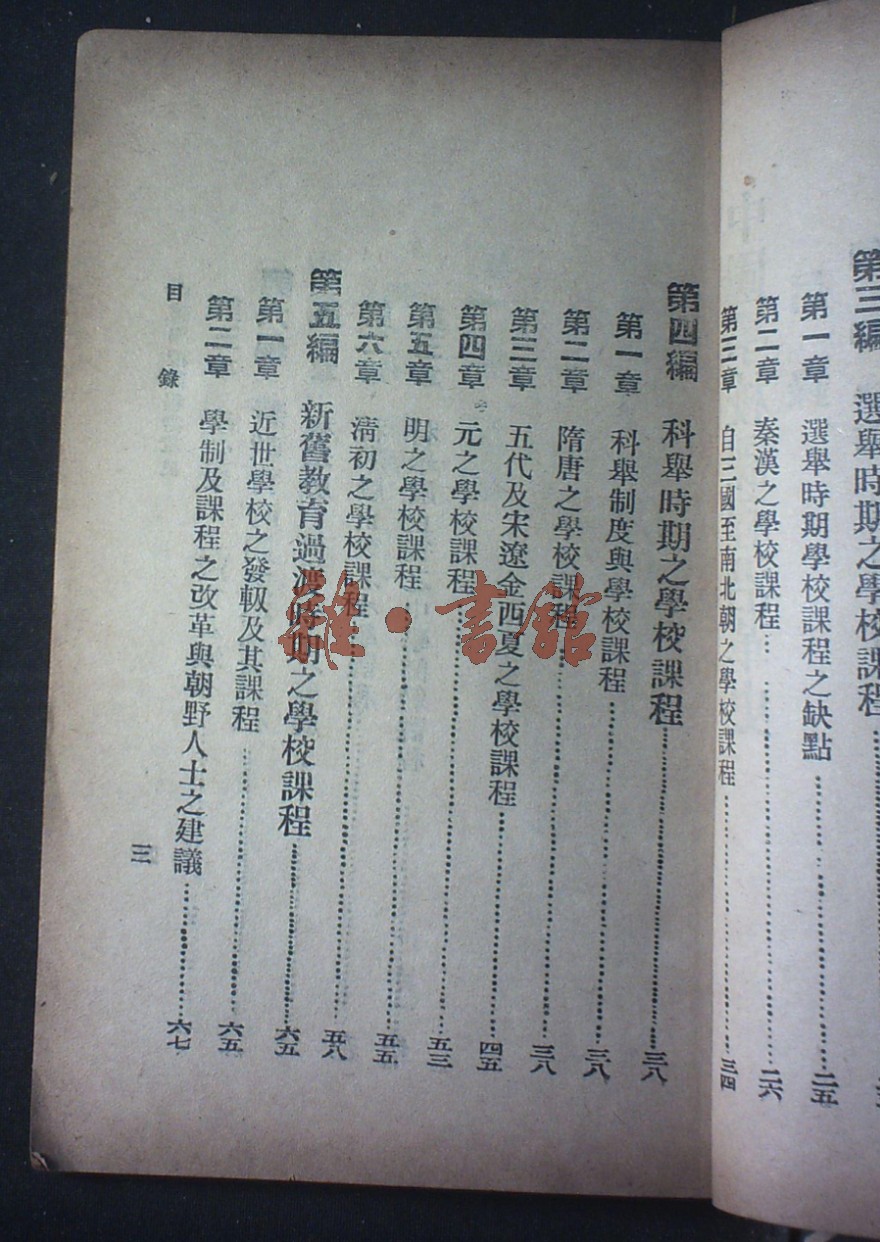 第三編 選舉時期之學校課程
第一章 選舉時期學校課程之缺點 二五
第二章 秦漢之學校課程 二六
第三章 自三國至南北朝之學校課程 三四
第四編 科舉時期之學校課程 三八
第一章 科舉制度與學校課程 三八
第二章 隋唐之學校課程 三八
第三章 五代及宋遼金西夏之學校課程 四五
第四章 元之學校課程 五三
第五章 明之學校課程 五五
第六章 清初之學校課程 五八
第五編 新舊教育過渡時期之學校課程 六五
第一章 近世學校之發軔及其課程 六五
第二章 學制及課程之改革與朝野人士之建議 六七
目 錄
三
雜·書館